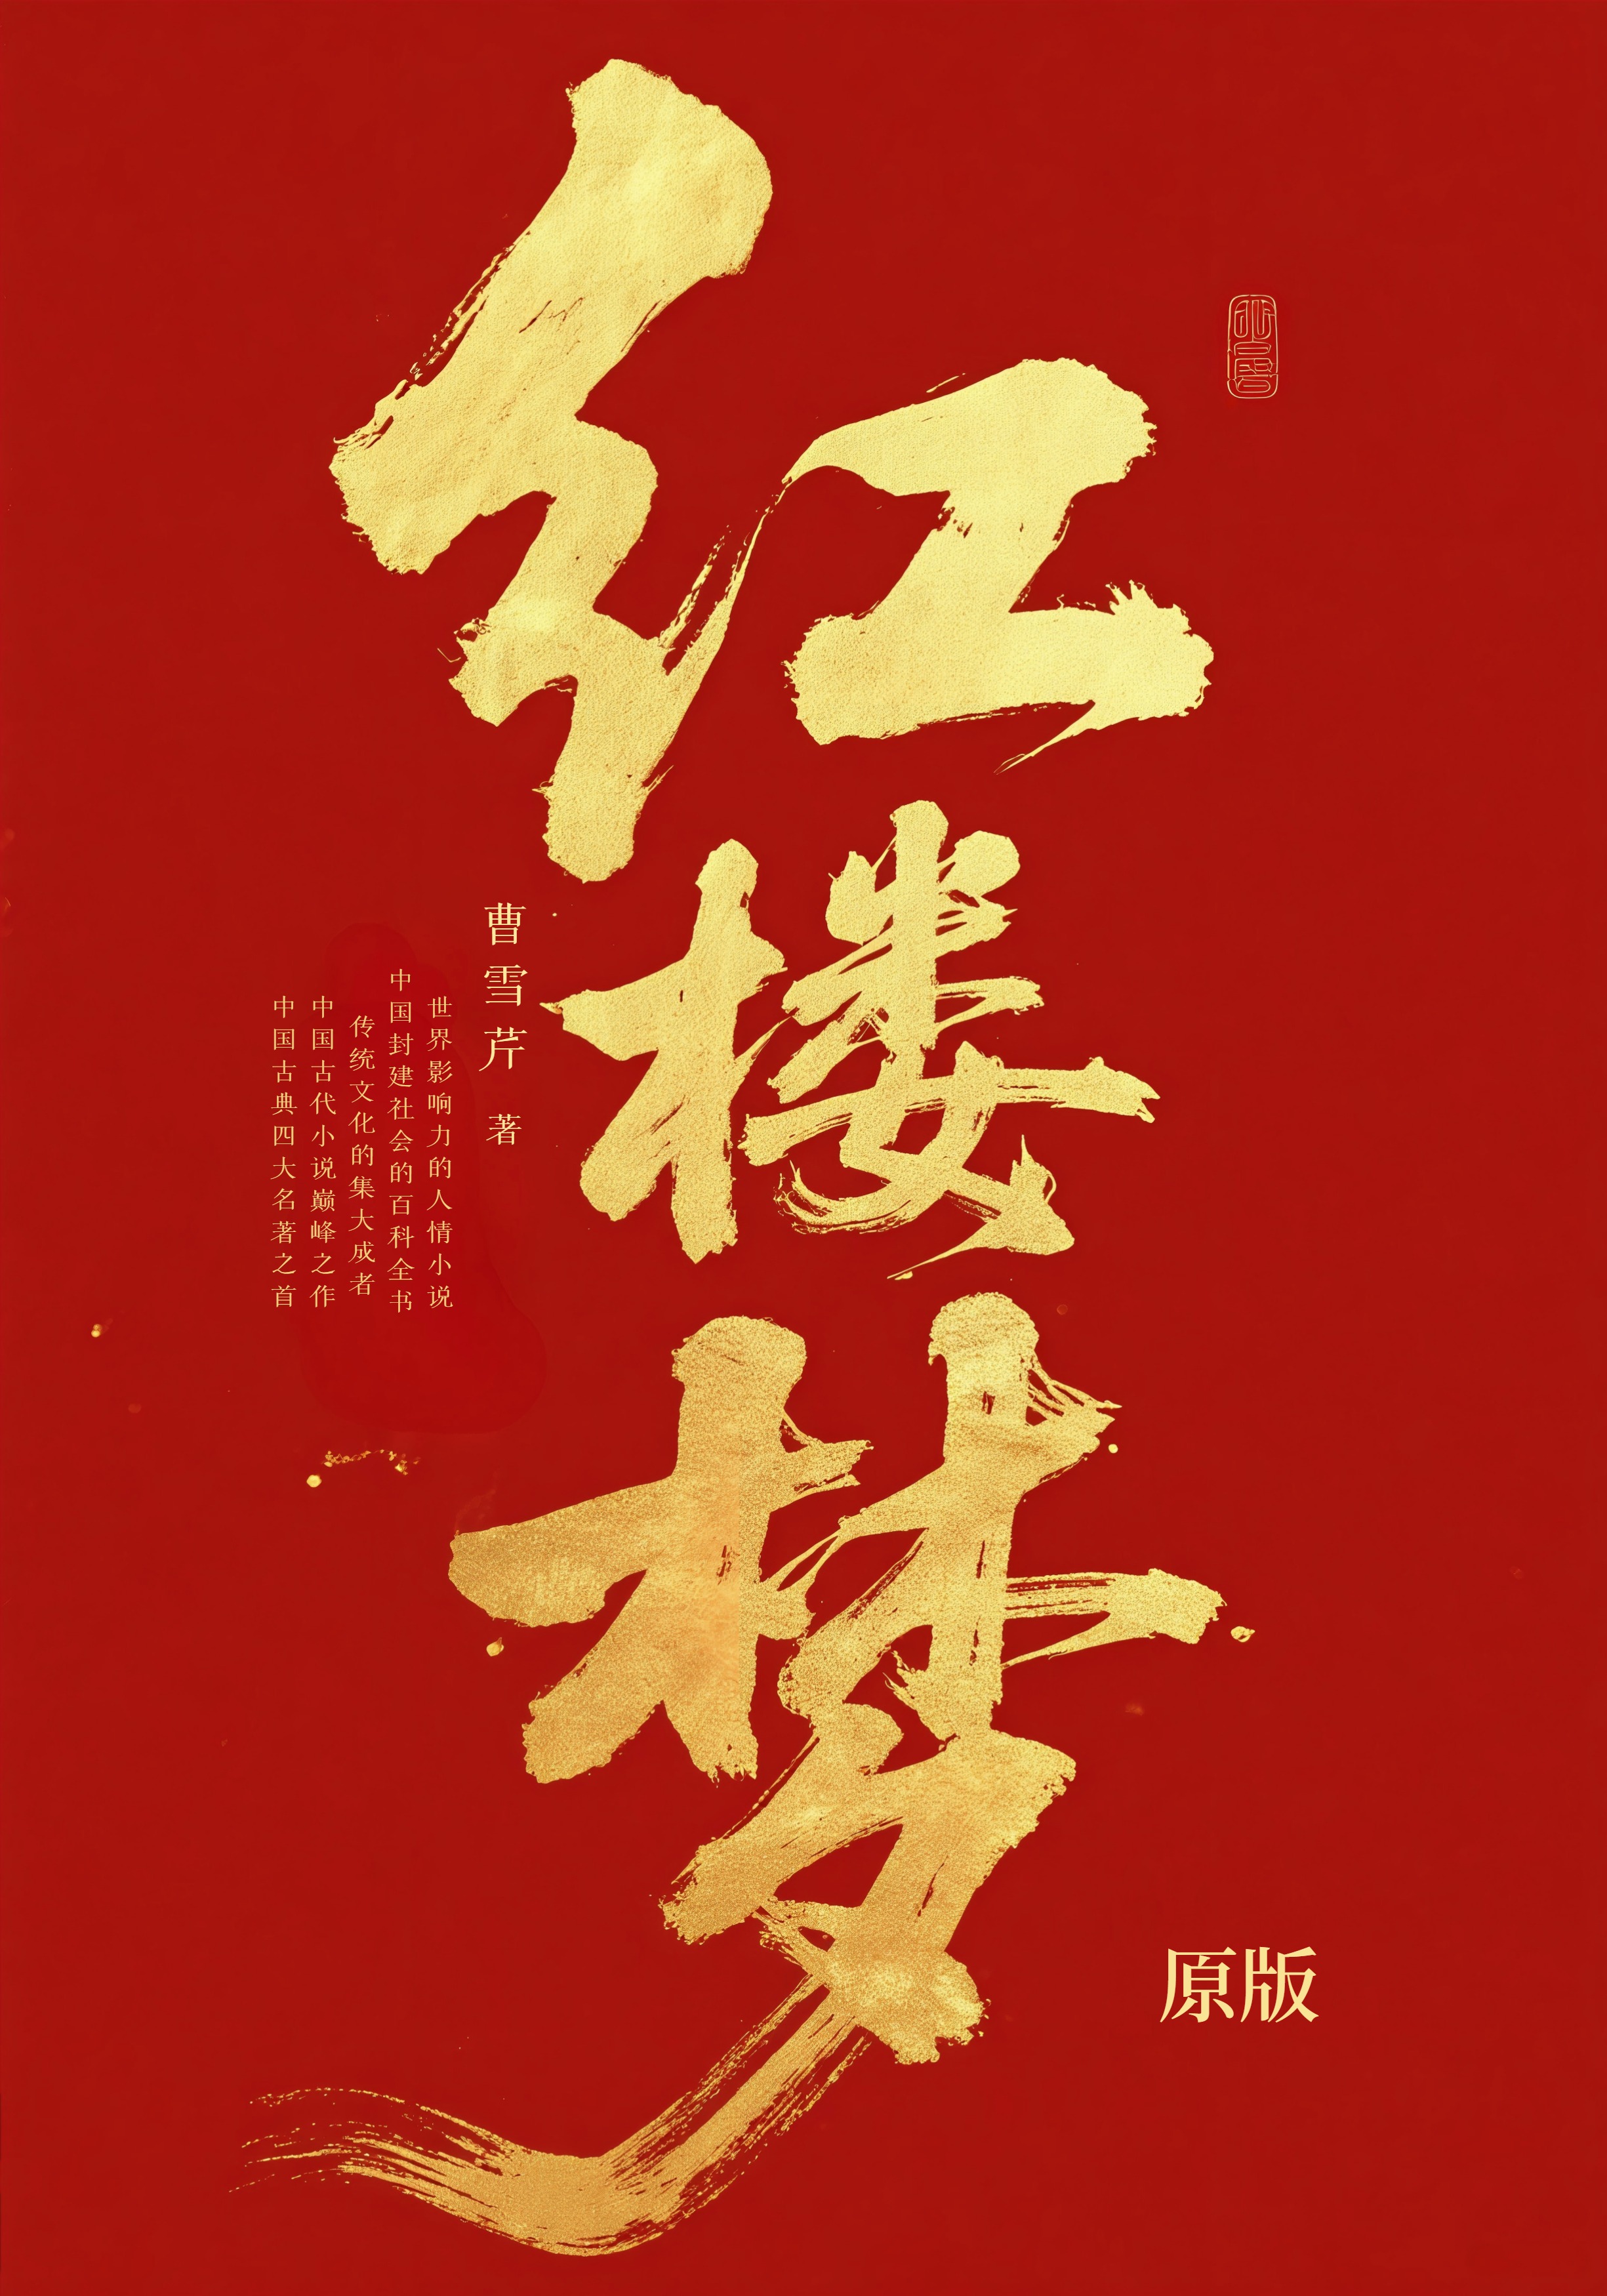 红楼梦
曹雪芹 著
世界影响力的人情小说
中国封建社会的百科全书
传统文化的集大成者
中国古代小说巅峰之作
中国古典四大名著之首
原版